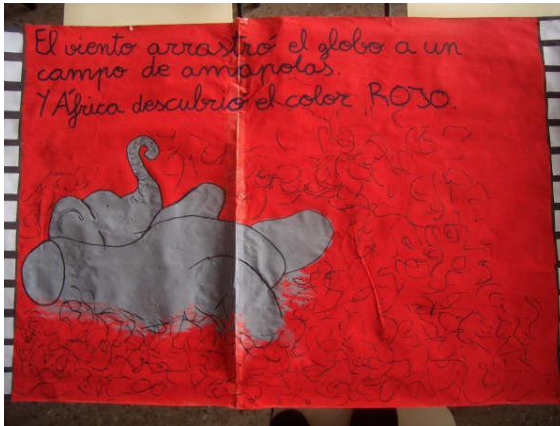 El viento arrastró el globo a un
campo de amapolas.
Y África descubrió el color ROJO.